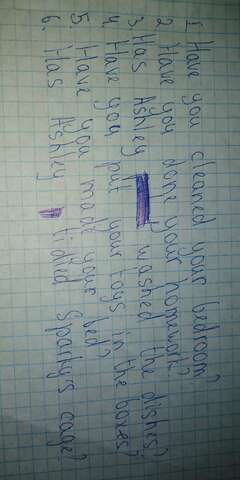 1. Have you cleaned your bedroom?
2. Have you done your homework?
3. Has Ashley washed the dishes?
4. Have you put your toys in the boxes?
5. Have you made your bed?
6. Has Ashley tidied Sparky's cage?